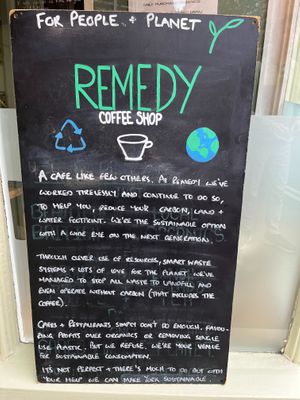 FOR PEOPLE + PLANET
REMEDY
COFFEE SHOP
A CAFE LIKE FEW OTHERS. AT REMEDY WE'VE
WORKED TIRELESSLY AND CONTINUE TO DO SO,
TO HELP YOU, REDUCE YOUR CARBON, LAND +
WATER FOOTPRINT. WE'RE THE SUSTAINABLE OPTION
WITH A WIDE EYE ON THE NEXT GENERATION.
THROUGH CLEVER USE OF RESOURCES, SMART WASTE
SYSTEMS + LOTS OF LOVE FOR THE PLANET WE'VE
MANAGED TO STOP ALL WASTE TO LANDFILL AND
EVEN OPERATE WITHOUT CARBON (THAT INCLUDES THE
COFFEE).
CAFES + RESTAURANTS SIMPLY DON'T DO ENOUGH. FAVOU-
RING PROFITS OVER ORGANICS OR REMOVING SINGLE
USE PLASTIC. BUT WE REFUSE. WE'RE YOUR VENUE
FOR SUSTAINABLE CONSUMPTION.
IT'S NOT PERFECT + THERE'S MUCH TO DO BUT WITH
YOUR HELP WE CAN MAKE YORK SUSTAINABLE.